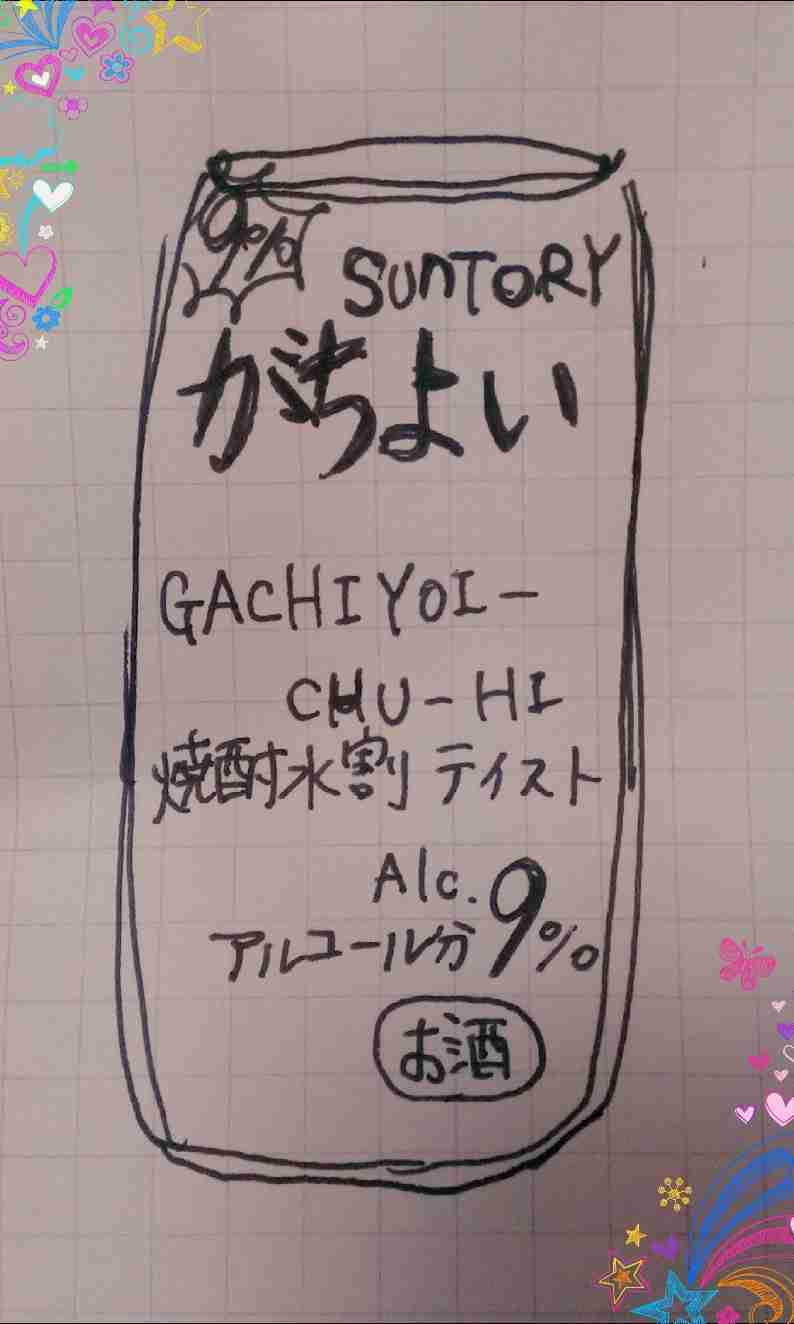 9%
SUNTORY
がちよい
GACHIYOI-
CHU-HI
焼酎水割テイスト
Alc.
アルコール分9%
お酒